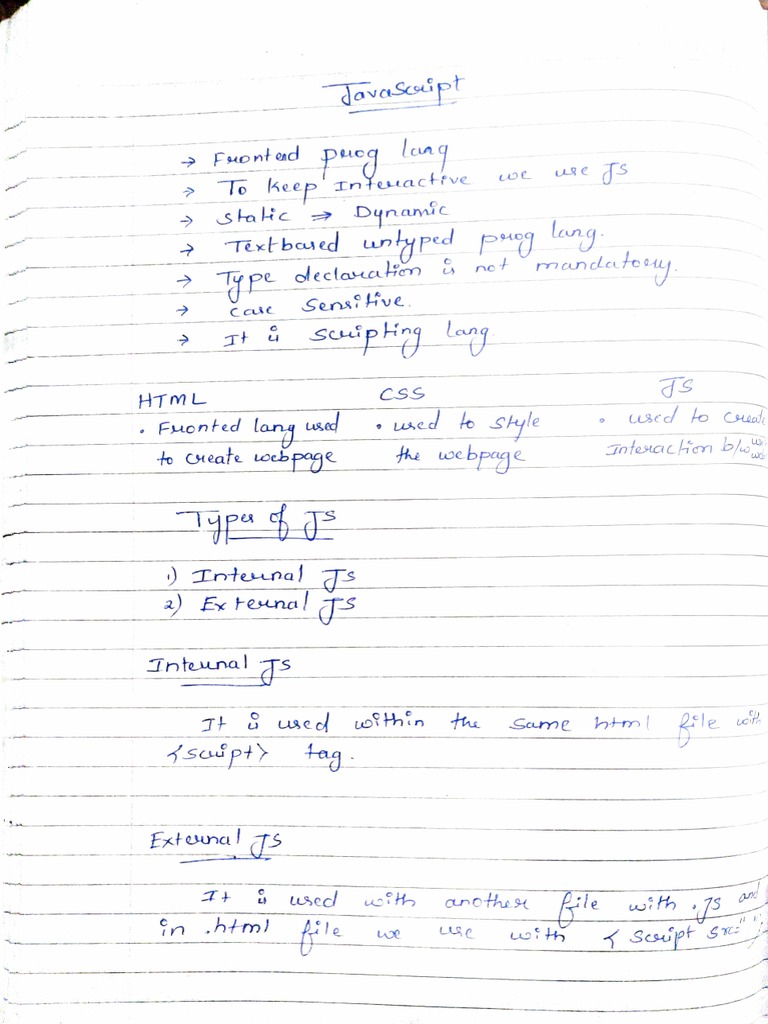 JavaScript
→ Frontend prog lang
→ To keep Interactive we use JS
→ Static ⇒ Dynamic
→ Textbased untyped prog lang.
→ Type declaration is not mandatory.
→ case sensitive.
→ It is scripting lang
HTML CSS JS
• Fronted lang used • used to style • used to create
to create webpage the webpage Interaction b/w
Types of JS
1) Internal JS
2) External JS
Internal JS
It is used within the same html file with
<script> tag.
External JS
It is used with another file with .JS and
in .html file we use with < script src=" "